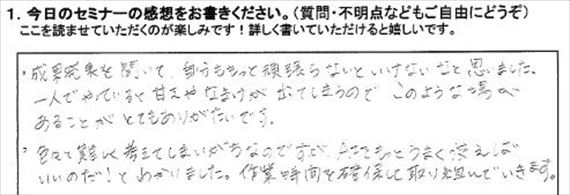 1. 今日のセミナーの感想をお書きください。(質問・不明点などもご自由にどうぞ)
ここを読ませていただくのが楽しみです!詳しく書いていただけると嬉しいです。
・成果発表を聞いて、自分ももっと頑張らないといけないなと思いました。
一人でやっていると甘えやなまけが出てしまうので このような場が
あることが とてもありがたいです。
・色々難しく考えてしまいがちなのですが、AIをもっとうまく使えば
いいのだ!とわかりました。作業時間を確保して取り組んでいきます。